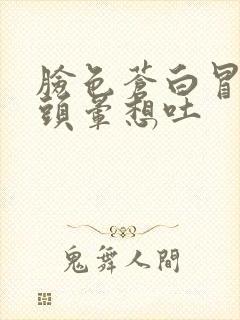 臉色蒼白冒
頭暈想吐
鬼舞人間